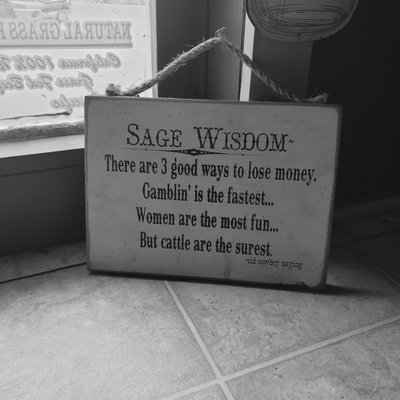 NATURAL GRASS
California 100%
Grass Fed
SAGE WISDOM~
There are 3 good ways to lose money.
Gamblin' is the fastest...
Women are the most fun...
But cattle are the surest.
~old cowboy saying